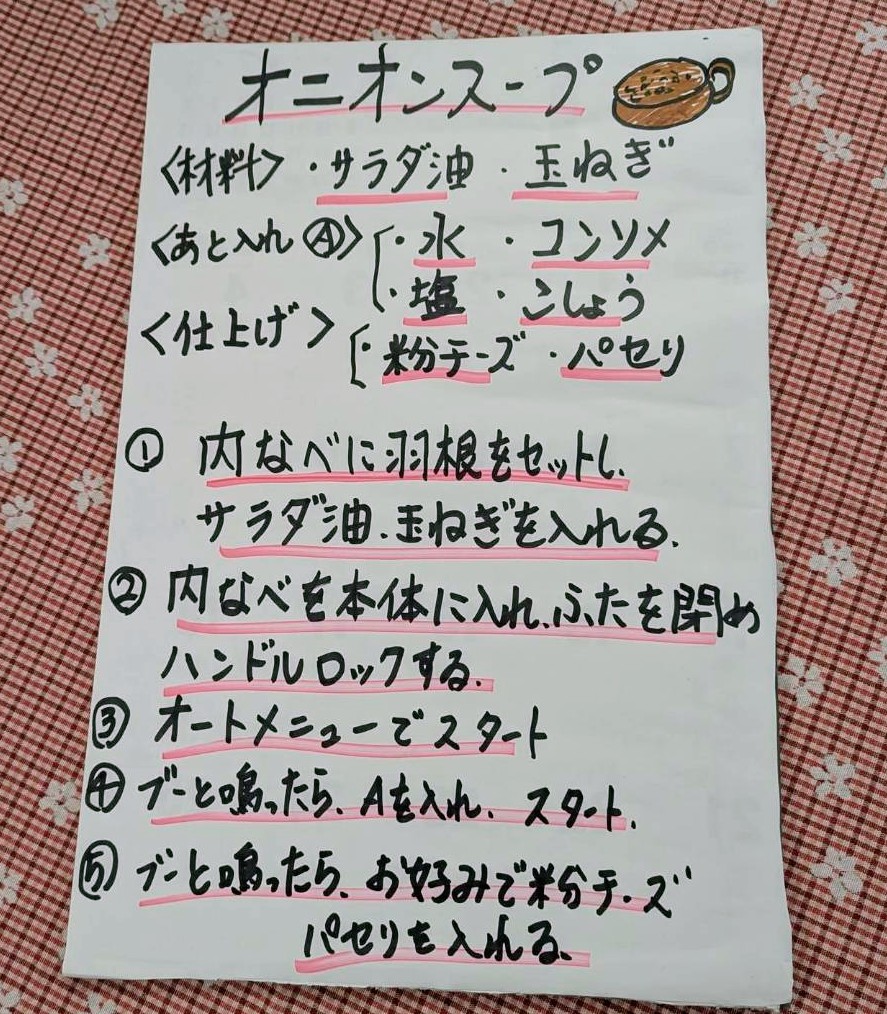 オニオンスープ
〈材料〉・サラダ油 ・玉ねぎ
〈あと入れ Ⓐ〉・水 ・コンソメ
・塩 ・こしょう
〈仕上げ〉・粉チーズ ・パセリ
① 内なべに羽根をセットし、
サラダ油、玉ねぎを入れる。
② 内なべを本体に入れ、ふたを閉め
ハンドルロックする。
③ オートメニューでスタート
④ ブーと鳴ったら、Aを入れ、スタート。
⑤ ブーと鳴ったら、お好みで粉チーズ
パセリを入れる。